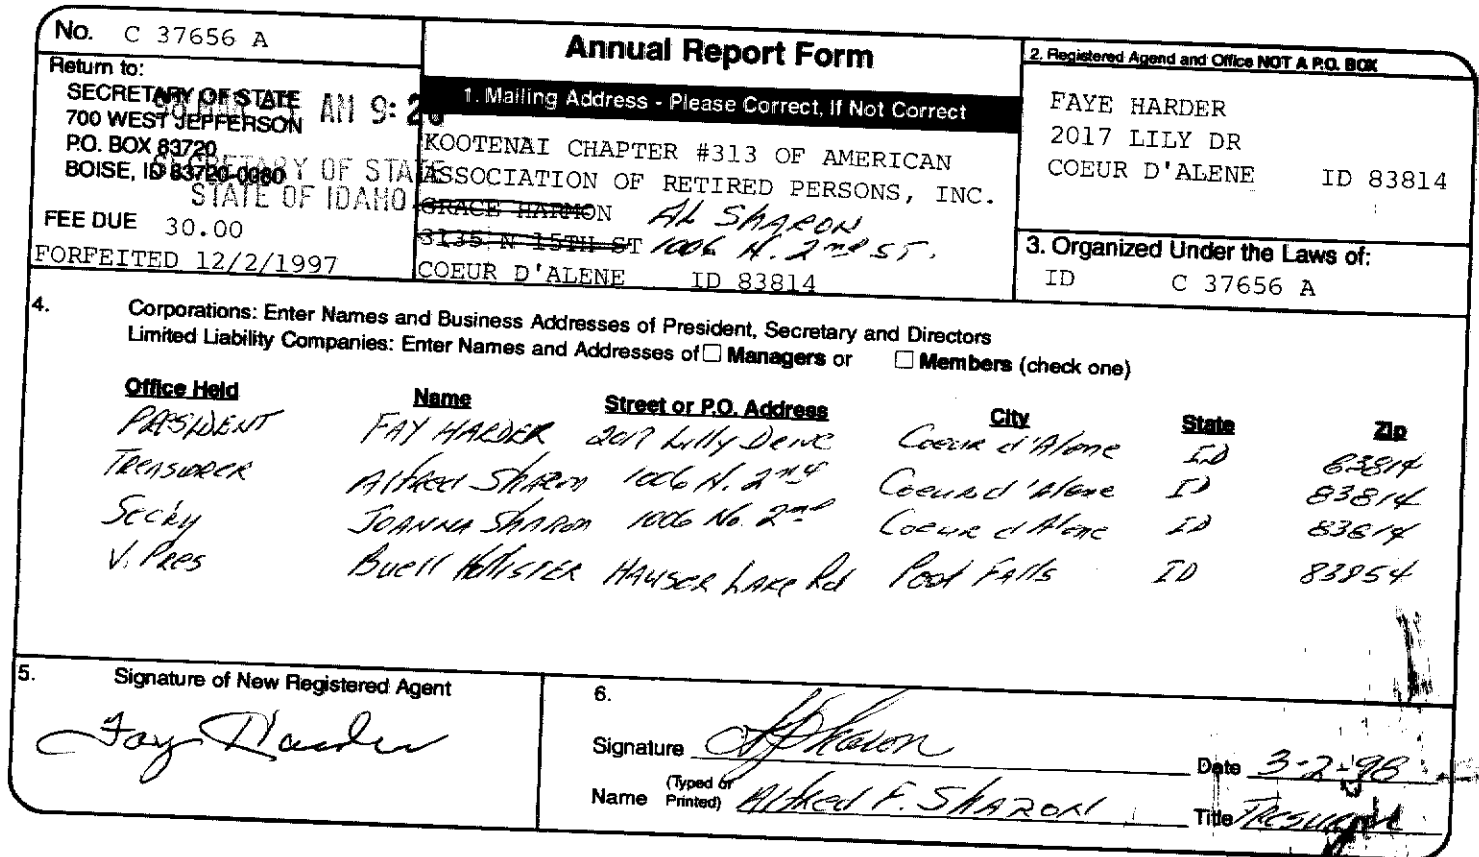 No. C 37656 A
Return to:
SECRETARY OF STATE
700 WEST JEFFERSON
P.O. BOX 83720
BOISE, ID 83720-0080
AM 9: 2
SECRETARY OF STATE
STATE OF IDAHO
FEE DUE 30.00
FORFEITED 12/2/1997
Annual Report Form
1. Mailing Address - Please Correct, If Not Correct
KOOTENAI CHAPTER #313 OF AMERICAN
ASSOCIATION OF RETIRED PERSONS, INC.
GRACE HARMON AL SHARON
3135 N 15TH ST 1006 N. 2nd ST.
COEUR D'ALENE ID 83814
2. Registered Agend and Office NOT A P.O. BOX
FAYE HARDER
2017 LILY DR
COEUR D'ALENE ID 83814
3. Organized Under the Laws of:
ID C 37656 A
4. Corporations: Enter Names and Business Addresses of President, Secretary and Directors
Limited Liability Companies: Enter Names and Addresses of ☐ Managers or ☐ Members (check one)
Office Held Name Street or P.O. Address City State Zip
PRESIDENT FAY HARDER 2017 Lilly Drive Coeur d'Alene ID 83814
Treasurer Alfred Sharon 1006 N. 2nd Coeur d'Alene ID 83814
Secty JOANNA Sharon 1006 No. 2nd Coeur d Alene ID 83814
V. Pres Buell Hollister HAUSER LAKE Rd Post Falls ID 83854
5. Signature of New Registered Agent
Fay Harder
6.
Signature A F Sharon Date 3-2-98
Name (Typed or Printed) Alfred F. SHARON Title Tresurer